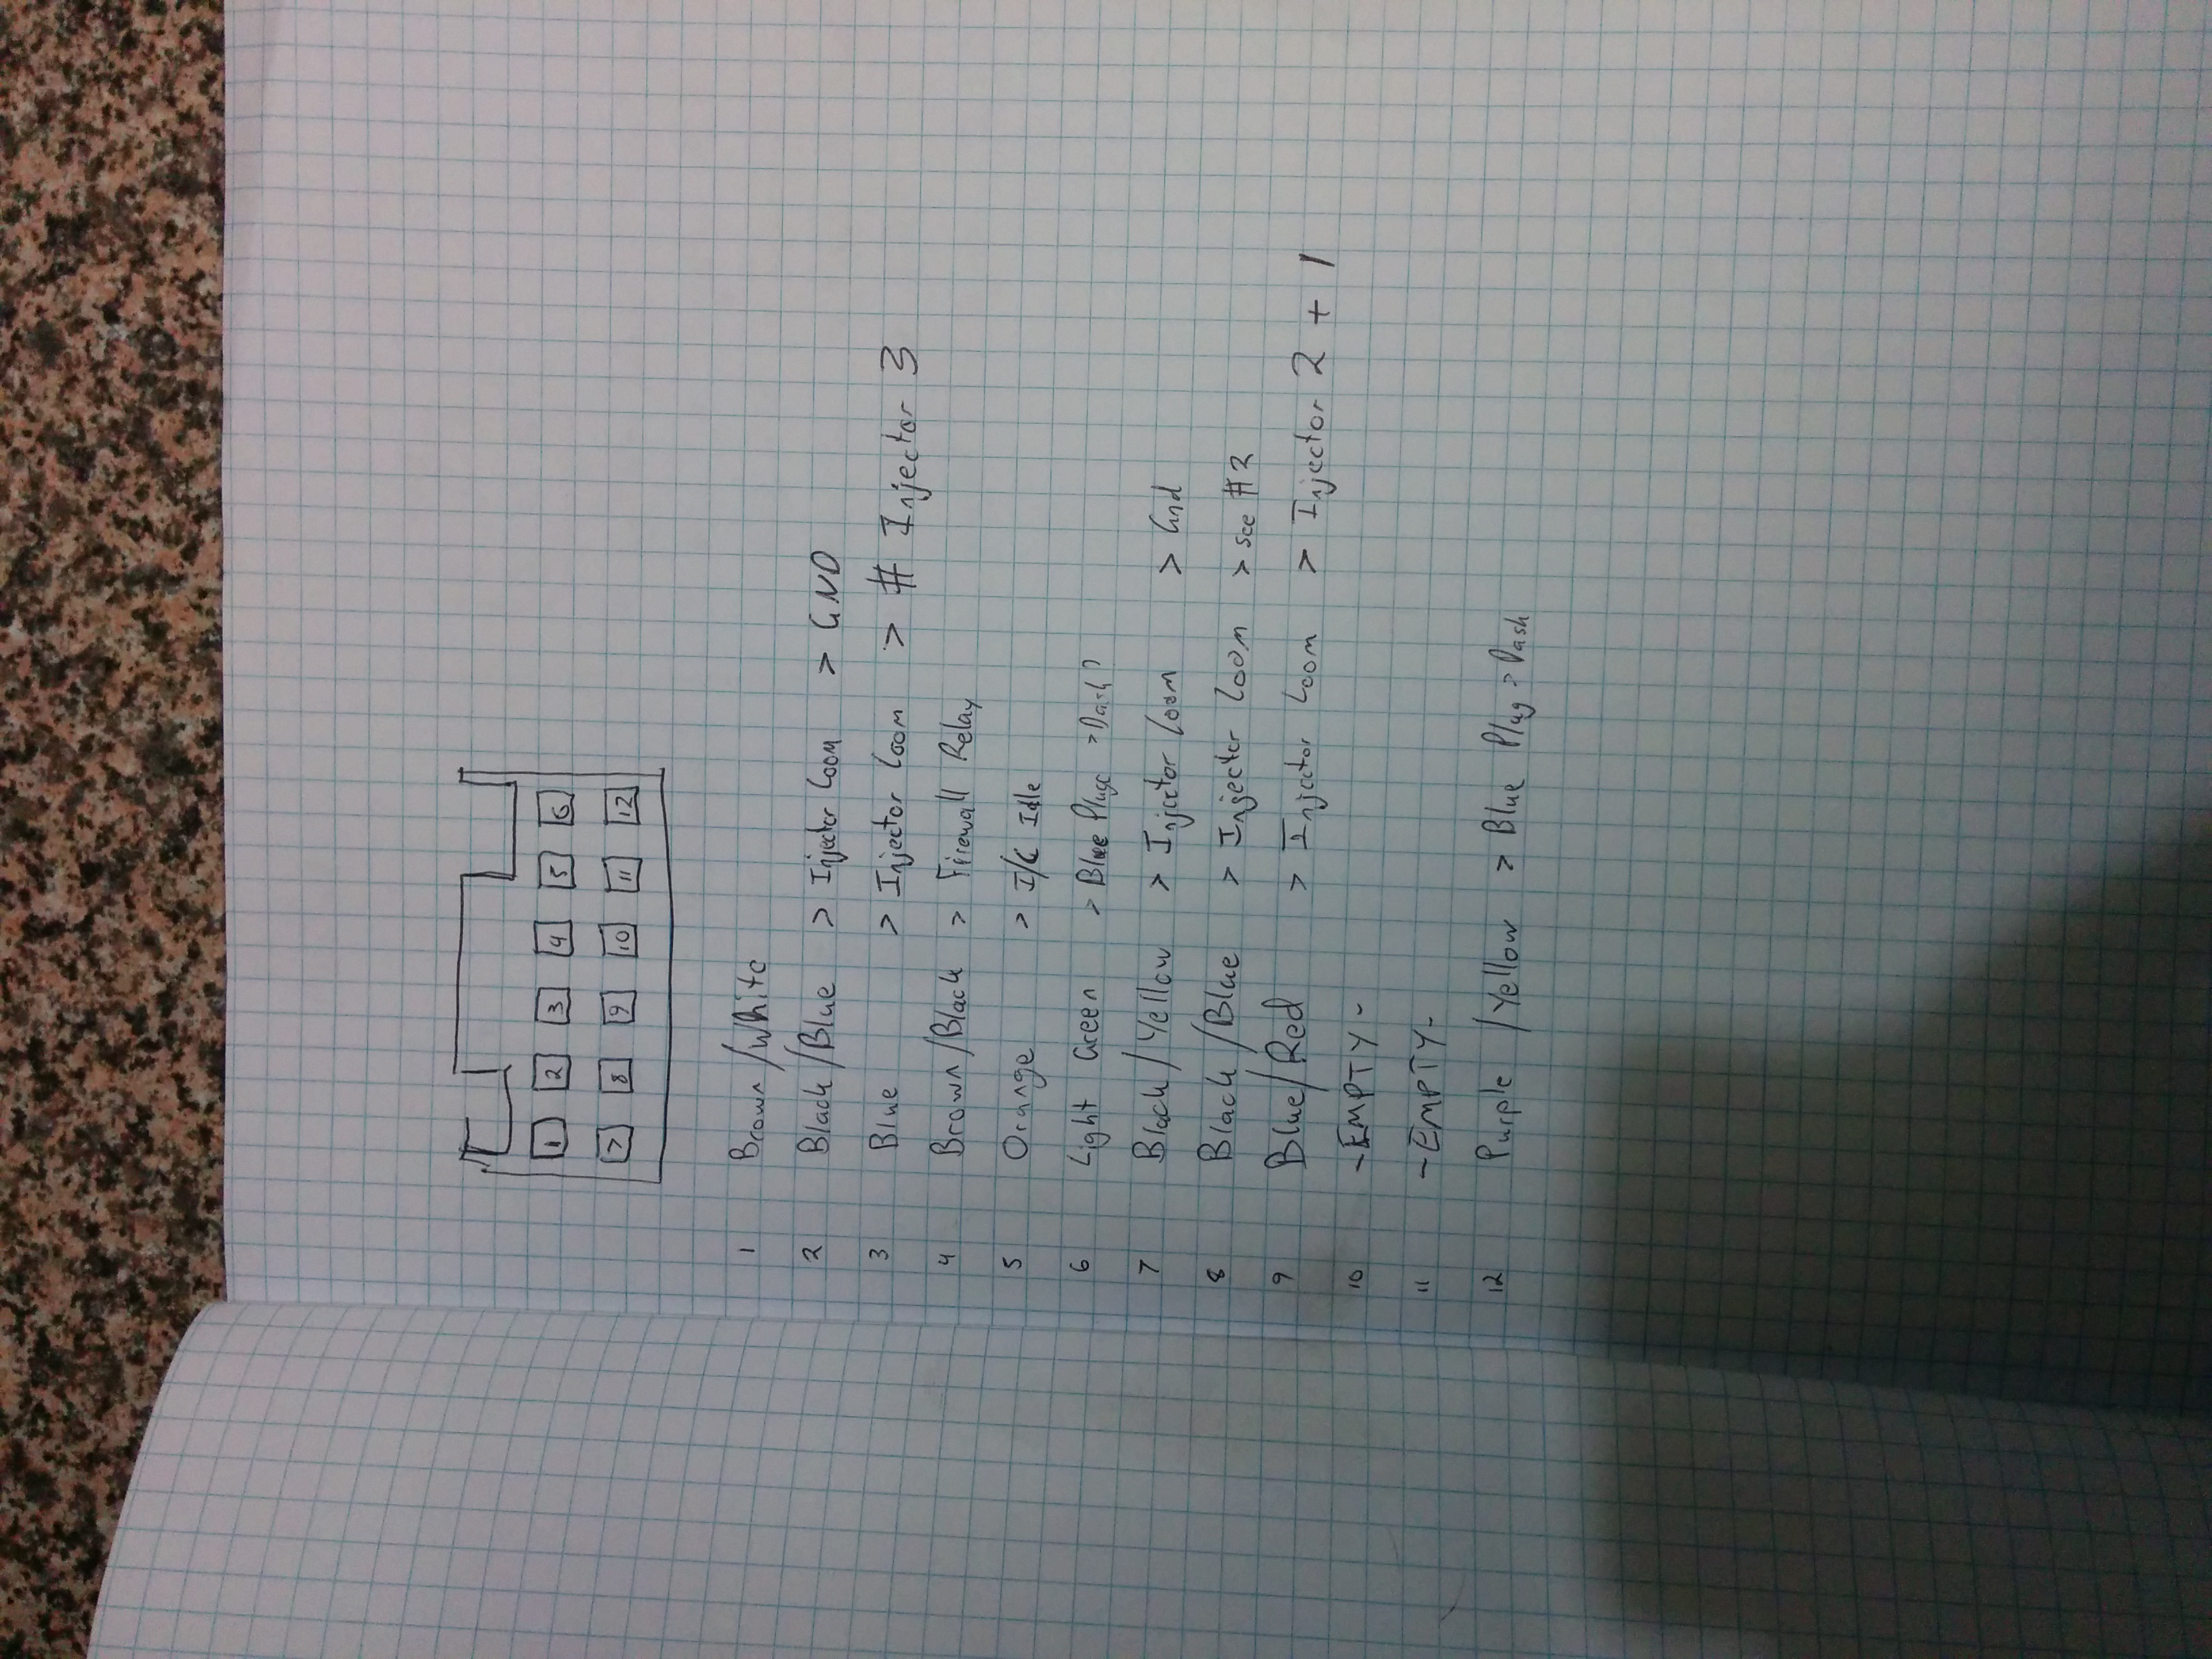 1 2 3 4 5 6
7 8 9 10 11 12
1 Brown/White
2 Black/Blue > Injector Loom > GND
3 Blue > Injector Loom > # Injector 3
4 Brown/Black > Firewall Relay
5 Orange > I/C Idle
6 Light Green > Blue Plugs > Dash?
7 Black/Yellow > Injector Loom > Gnd
8 Black/Blue > Injector Loom > see #2
9 Blue/Red > Injector Loom > Injector 2 + 1
10 -EMPTY-
11 -EMPTY-
12 Purple/Yellow > Blue Plug > Dash